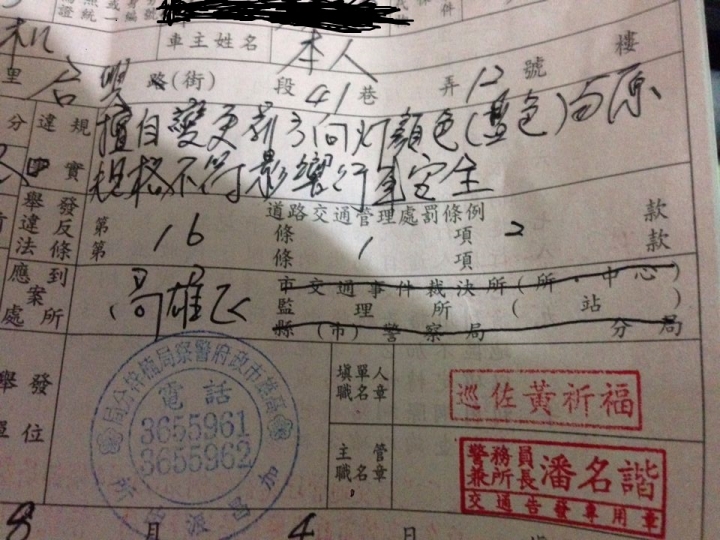 車主姓名 本人
里 台 路(街) 段 41 巷 弄 12 號 樓
違規 擅自變更前方向灯顏色(藍色)与原
事實 規格不符影響行車安全
道路交通管理處罰條例
舉發違反法條 第 16 條 1 項 2 款
第 條 項 款
應到案處所 高雄区
市交通事件裁決所(所.中心)
監理所( 站)
縣(市)警察局 分局
舉發單位
高雄市政府警察局楠梓分局
電話
3655961
3655962
加昌派出所
填單人職名章
巡佐黃祈福
主管職名章
警務員兼所長潘名諧
交通告發專用章
8 月 4 日